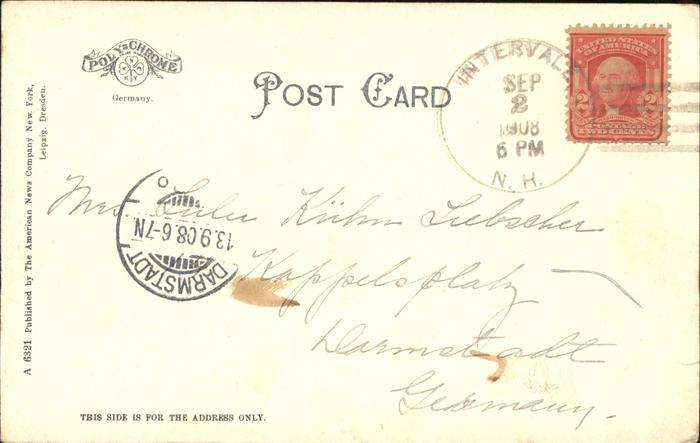 POLY-CHROME
Germany.
POST CARD
INTERVALE
SEP
2
1908
6 PM
N. H.
UNITED STATES
OF AMERICA
2 2
TWO CENTS
A 6321 Published by The American News Company New York,
Leipzig, Dresden.
DARMSTADT
13.9.08.6-7N
Mrs Kühn Liebscher
Kappelsplatz
Darmstadt
Germany.
THIS SIDE IS FOR THE ADDRESS ONLY.